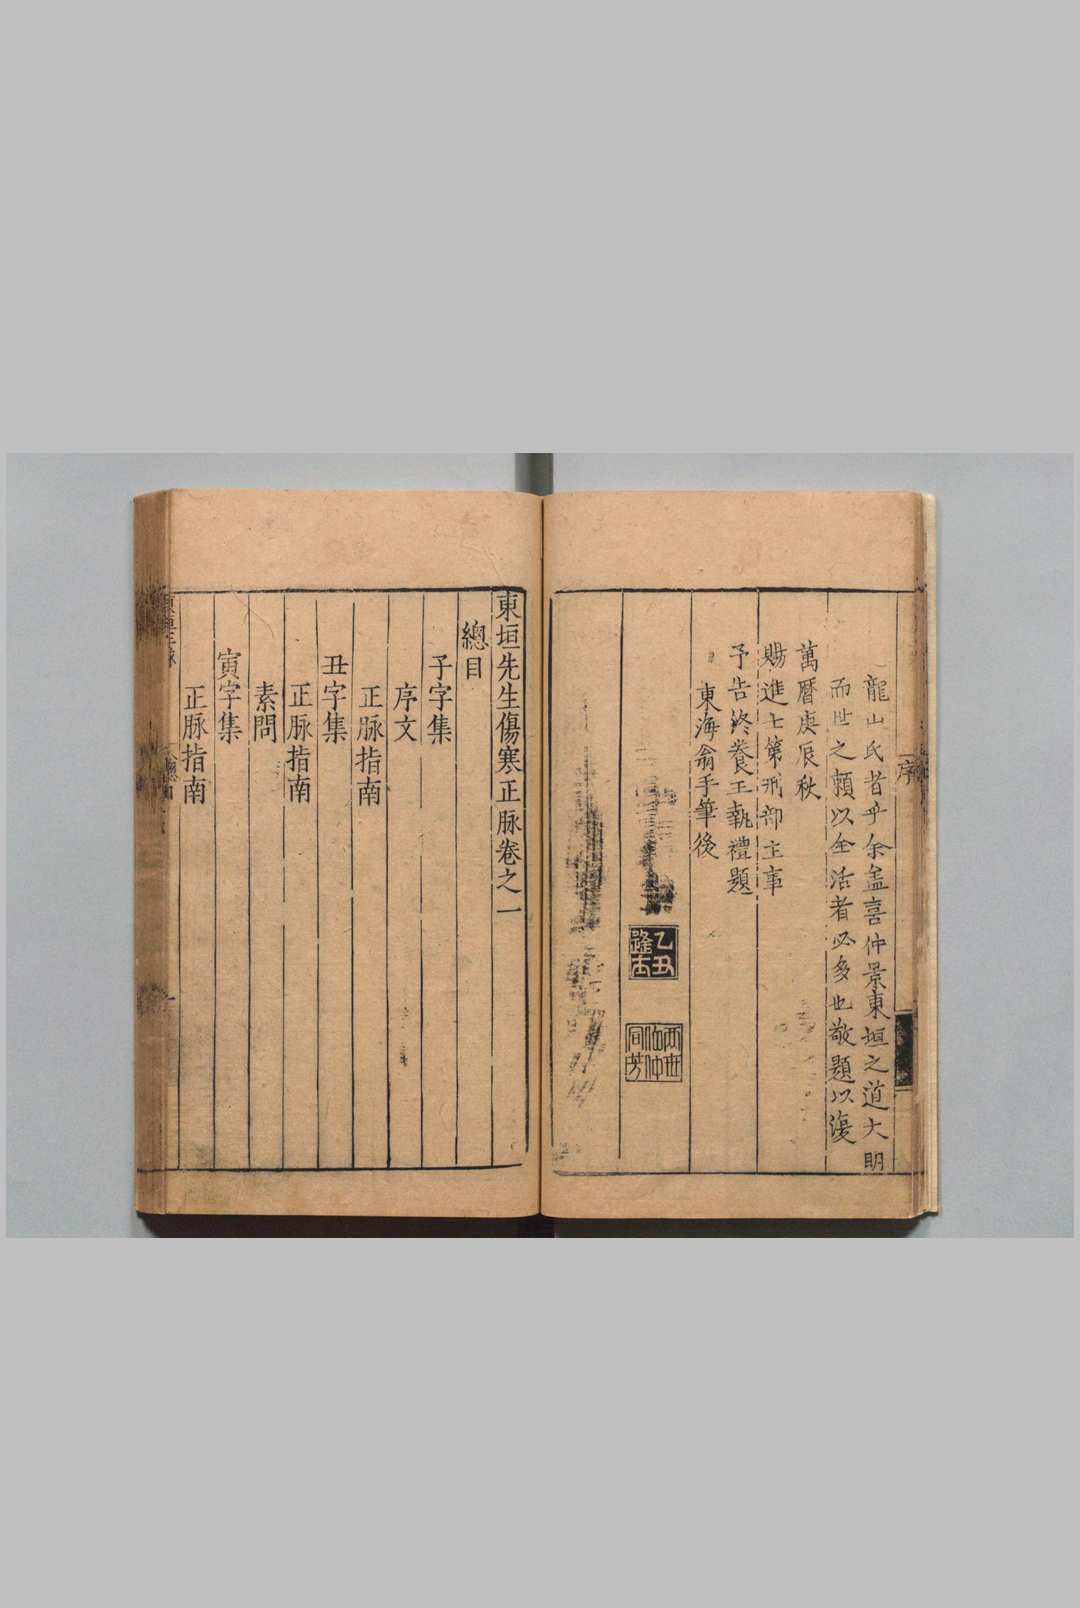 序
龍山氏者乎余盖喜仲景東垣之道大明
而世之賴以全活者必多也敬題以復
萬曆庚辰秋
賜進士第刑部主事
予告終養王執禮題
東海翁手筆後
乙丑
逢本
兩世
伯仲
同芳
東垣先生傷寒正脉卷之一
總目
子字集
序文
正脉指南
丑字集
正脉指南
素問
寅字集
正脉指南